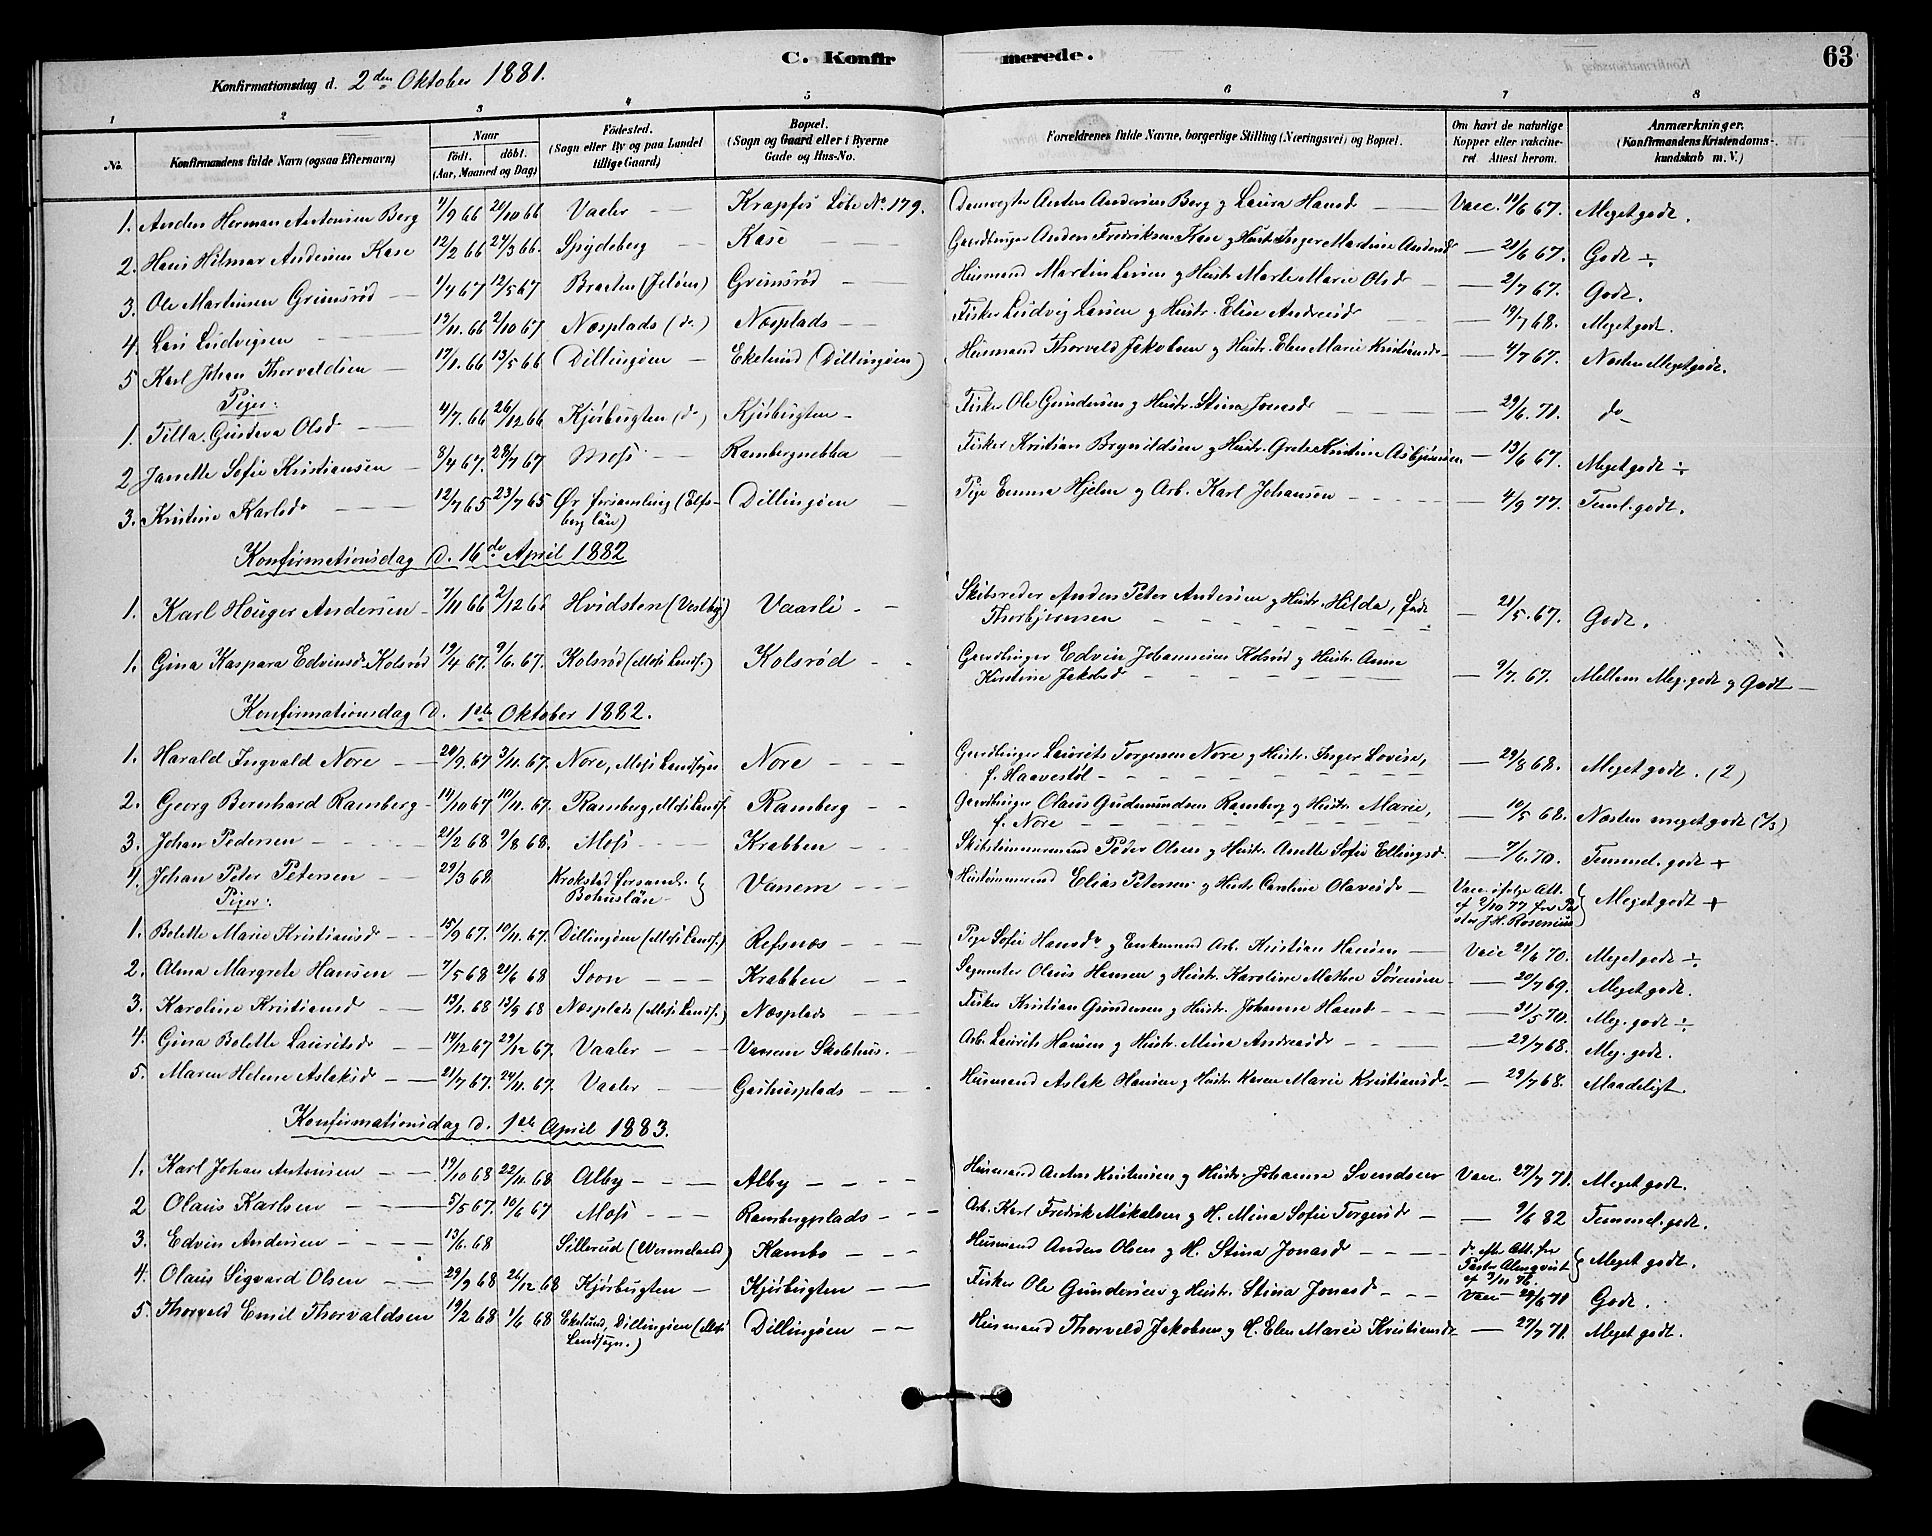 C. Konfirmerede. 63
Konfirmationsdag d. 2den Oktober 1881.
1 2 3 4 5 6 7 8
No. Konfirmandens fulde Navn (ogsaa Efternavn) Naar født. døbt. (Aar, Maaned og Dag) Fødested. (Sogn eller By og paa Landet tillige Gaard) Bopæl. (Sogn og Gaard eller i Byerne Gade og Hus-No. Forældrenes fulde Navne, borgerlige Stilling (Næringsvei) og Bopæl. Om havt de naturlige Kopper eller vakcineret Attest herom. Anmærkninger. (Konfirmandens Kristendomskundskab m. V.)
1. Anders Herman Antonsen Berg 7/9 66 21/10 66 Vaaler Krapfos Løbe No. 179. Damvogter Anton Andersen Berg og Laura Hansd. Vacc. 14/6 67. Meget godt.
2. Hans Hilmar Andersen Kase 12/2 66 27/3 66. Spydeberg Kase Gaardbruger Anders Fredriksen Kase og Hustr. Inger Martine Andersd. 21/6 67. Godt ÷
3. Ole Martinsen Grimsrød 1/4 67 12/5 67 Braaten (Jeløen) Grimsrød Husmand Martin Larsen og Hustr. Marte Marie Olsd. 2/7 67. Godt.
4. Lars Ludvigsen 13/11 66 2/10 67 Næsplads (do) Næsplads Fisker Ludvig Larsen og Hustr. Elise Andreasd. 19/7 68. Meget godt.
5 Karl Johan Thorvaldsen 17/1 66 13/5 66 Dillingøen Ekelund (Dillingøen) Husmand Thorvald Jakobsen og Hustr. Elen Marie Kristiansd. 4/7 67. Næsten Meget godt.
Piger:
1. Tilla Gustava Olsd. 4/7 66 26/12 66 Kjørbugten (do) Kjørbugten Fisker Ole Gundersen og Hustr. Stina Jonasd. 29/6. 71. do
2 Janette Sofie Kristiansen 8/4 67. 28/7 67 Moss Rambergnebba Fisker Kristian Brynildsen og Hustr. Grete Kristine Asbjørnsen 13/6 67. Meget godt ÷
3. Kristine Karlsd. 12/7 65 23/7 65 Ør forsamling (Elfsberg län) Dillingøen Pige Emma Hjelm og Arb. Karl Johansen 4/9 77. Teml. godt.
Konfirmationsdag d. 16de April 1882
1. Karl Houger Andersen 7/11 66 2/12 66 Hvidsten (Vestby) Vaarli Skibsreder Anders Peter Andersen og Hustr. Hilda, født Thorbjørnsen 21/5. 67. Godt.
1. Gina Kaspara Edvinsd. Kolsrød 19/4 67. 9/6. 67. Kolsrød (Moss Lands.) Kolsrød Gaardbruger Edvin Johannesen Kolsrød og Hustr. Anne Kirstine Jakobsd. 9/7. 67. Mellem Meg. godt og Godt
Konfirmationsdag d. 1ste Oktober 1882.
1. Harald Ingvald Nore 20/9. 67 3/11. 67. Nore, Moss Landsogn Nore Gaardbruger Laurits Torgersen Nore og Hustr. Inger Lovise, f. Haavestøl 29/8 68. Meget godt. (2)
2. Georg Bernhard Ramberg 14/10 67 10/11. 67. Ramberg, Moss Lands. Ramberg Gaardbruger Olaus Gudmundsen Ramberg og Hustr. Marie, f. Nore 10/5 68. Næsten meget godt
3. Johan Pedersen 21/2 68 9/8 68. Moss Krabben Skibstømmermand Peder Olsen og Hustr. Anette Sofie Ellingsd. 7/6. 70. Temmel. godt +
4. Johan Peter Petersen 29/3 68 Krokstad forsaml. Bohuslän Vanem Hustømmermand Elias Petersen og Hustr. Caroline Olavesd. Vacc. ifølge Att. af 2/10 77 fra Pastor J.H. Rosenius Meget godt +
Piger:
1. Bolette Marie Kristiansd. 15/9 67. 10/11. 67. Dillingøen (Moss Lands.) Refsnæs Pige Sofie Hansdr. og Enkemand Arb. Kristian Hansen Vacc 21/6 70. Meget godt ÷
2. Alma Margrete Hansen 7/5 68 21/6 68 Soon Krabben Sagmester Olaus Hansen og Hustr. Karoline Mathea Sørensen 20/7 69. Meget godt.
3. Karoline Kristiansd. 13/1. 68 13/9 68 Næsplads (Moss Lands.) Næsplads Fisker Kristian Gundersen og Hustr. Johanne Hansd. 31/5 70. Meg. godt ÷
4. Gina Bolette Lauritsdr. 14/12 67 29/12 67. Vaaler Vanem Skolehus. Arb. Laurits Hansen og Hustr. Mina Andreasd. 29/7 68. Meg. godt.
5. Maren Helene Aslaksd. 21/7 67. 24/11. 67. Vaaler Gashusplads Husmand Aslak Hansen og Hustr. Karen Marie Kristiansd. 29/7 68. Maadeligt
Konfirmationsdag d. 1ste April 1883.
1. Karl Johan Antonsen 19/10 68 22/11. 68 Alby Alby Husmand Anton Kristensen og Hustr. Johanne Svendsen Vacc. 27/7 71. Meget godt.
2 Olaus Karlsen 5/5 67. 10/6 67 Moss Rambergplads Arb. Karl Fredrik Mikalsen og H. Mina Sofie Torgersd. 9/6 82 Temmel. godt.
3. Edvin Andersen 13/6. 68 Sillerud (Wermeland) Kambo Husmand Anders Olsen og H. Stina Jonasd. do efter Att. fra Pastor Almqvist af 3/11 76. Meget godt.
4. Olaus Sigvard Olsen 29/9 68 26/12 68 Kjørbugten Kjørbugten Fisker Ole Gundersen og Hustr. Stina Jonasd. Vacc 29/6 71 Godt.
5. Thorvald Emil Thorvaldsen 19/2 68 1/6 68 Ekelund, Dillingøen (Moss Landsogn.) Dillingøen Husmand Thorvald Jakobsen og H. Elen Marie Kristiansd. 27/7 71. Meget godt.